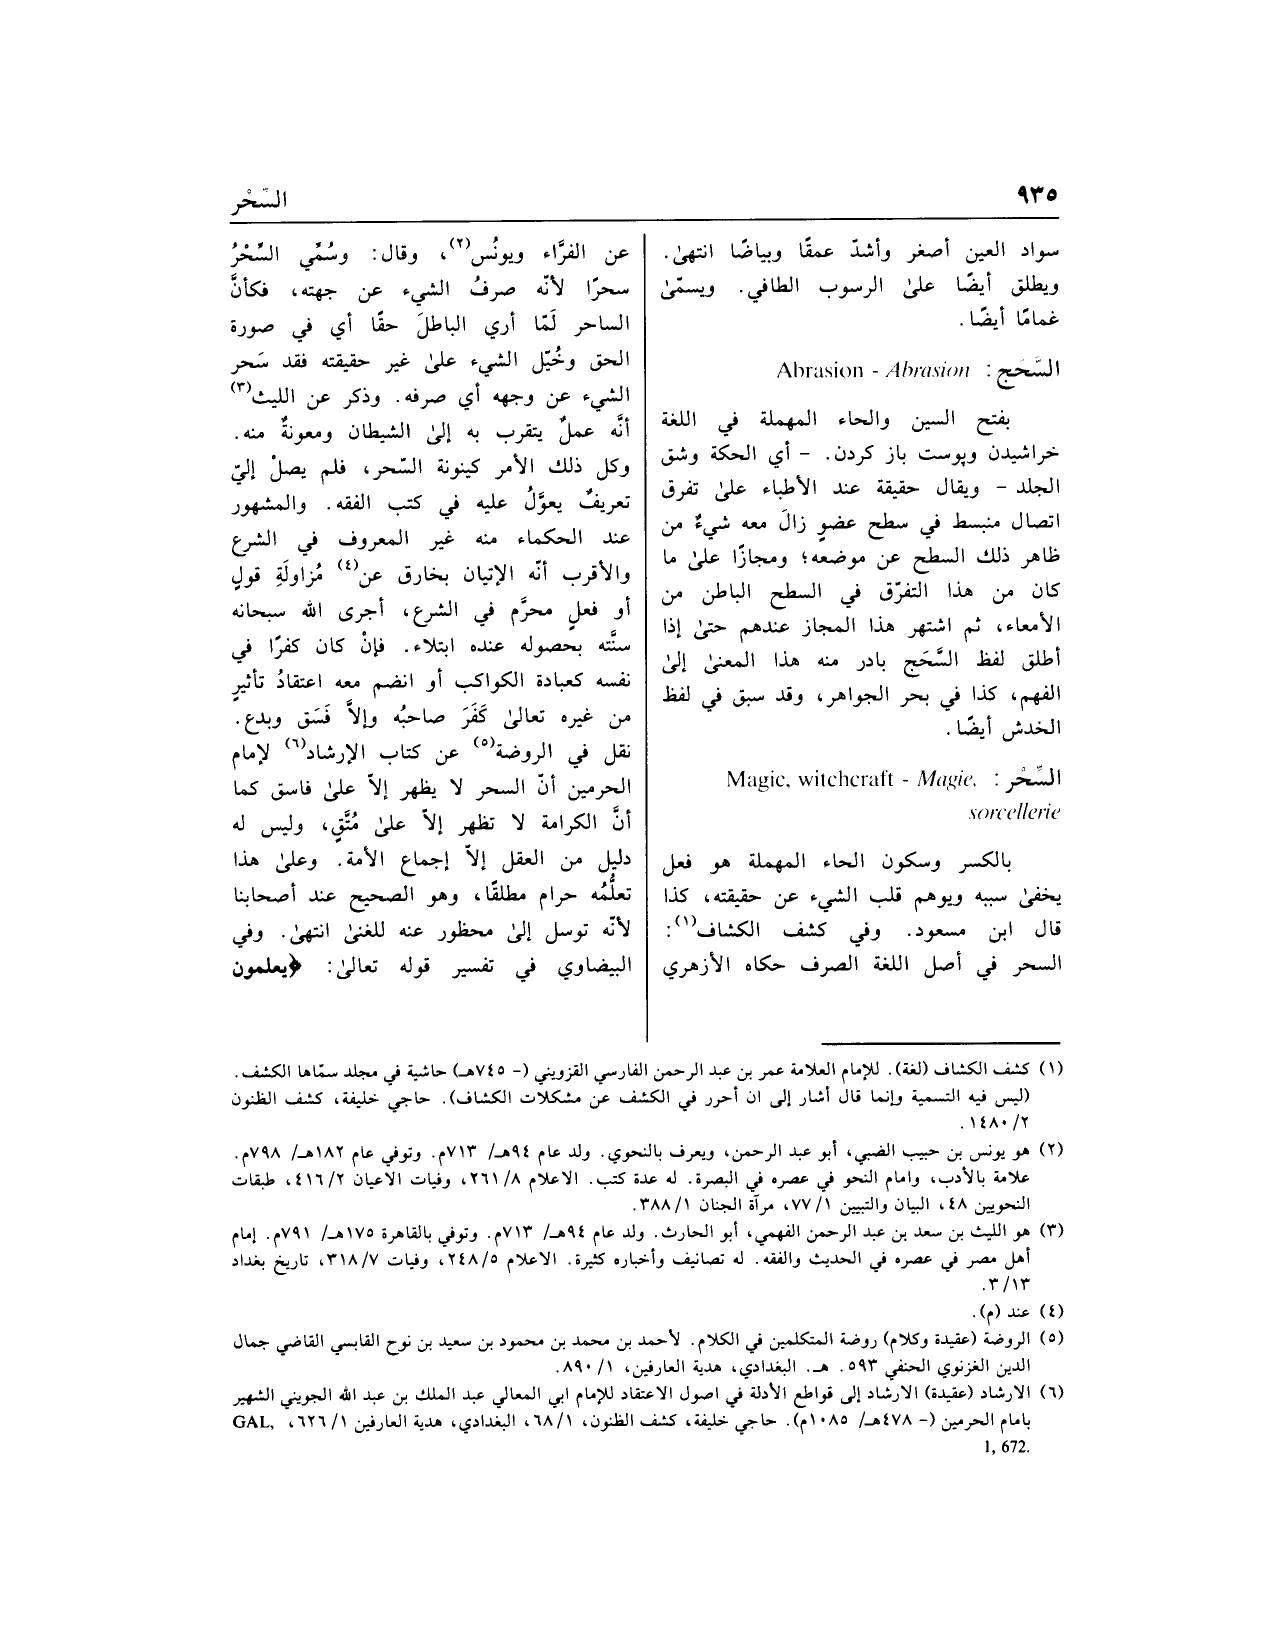 ٩٣٥
السِّحْر
سواد العين أصغر وأشدّ عمقًا وبياضًا انتهىٰ.
ويطلق أيضًا علىٰ الرسوب الطافي. ويسمّىٰ
غمامًا أيضًا.
السَّحَج : Abrasion - Abrasion
بفتح السين والحاء المهملة في اللغة
خراشيدن وپوست باز كردن. - أي الحكة وشق
الجلد - ويقال حقيقة عند الأطباء علىٰ تفرق
اتصال منبسط في سطح عضوٍ زالَ معه شيءٌ من
ظاهر ذلك السطح عن موضعه؛ ومجازًا علىٰ ما
كان من هذا التفرّق في السطح الباطن من
الأمعاء، ثم اشتهر هذا المجاز عندهم حتىٰ إذا
أطلق لفظ السَّحَج بادر منه هذا المعنىٰ إلىٰ
الفهم، كذا في بحر الجواهر، وقد سبق في لفظ
الخدش أيضًا.
السِّحْر : Magic, witchcraft - Magie,
sorcellerie
بالكسر وسكون الحاء المهملة هو فعل
يخفىٰ سببه ويوهم قلب الشيء عن حقيقته، كذا
قال ابن مسعود. وفي كشف الكشاف(١):
السحر في أصل اللغة الصرف حكاه الأزهري
عن الفرَّاء ويونُس(٢)، وقال: وسُمِّي السِّحْرُ
سحرًا لأنّه صرفُ الشيء عن جهته، فكأنَّ
الساحر لَمّا أري الباطلَ حقًا أي في صورة
الحق وخُيّل الشيء علىٰ غير حقيقته فقد سَحر
الشيء عن وجهه أي صرفه. وذكر عن الليث(٣)
أنَّه عملٌ يتقرب به إلىٰ الشيطان ومعونةٌ منه.
وكل ذلك الأمر كينونة السّحر، فلم يصلْ إليّ
تعريفٌ يعوَّلُ عليه في كتب الفقه. والمشهور
عند الحكماء منه غير المعروف في الشرع
والأقرب أنّه الإتيان بخارق عن(٤) مُزاولَةِ قولٍ
أو فعلٍ محرَّم في الشرع، أجرى الله سبحانه
سنَّته بحصوله عنده ابتلاء. فإنْ كان كفرًا في
نفسه كعبادة الكواكب أو انضم معه اعتقادُ تأثيرٍ
من غيره تعالىٰ كَفَرَ صاحبُه وإلاَّ فَسَق وبدع.
نقل في الروضة(٥) عن كتاب الإرشاد(٦) لإمام
الحرمين أنّ السحر لا يظهر إلاّ علىٰ فاسق كما
أنَّ الكرامة لا تظهر إلاّ علىٰ مُتَّقٍ، وليس له
دليل من العقل إلاّ إجماع الأمة. وعلىٰ هذا
تعلُّمُه حرام مطلقًا، وهو الصحيح عند أصحابنا
لأنّه توسل إلىٰ محظور عنه للغنىٰ انتهىٰ. وفي
البيضاوي في تفسير قوله تعالىٰ: ﴿يعلمون
(١) كشف الكشاف (لغة). للإمام العلامة عمر بن عبد الرحمن الفارسي القزويني (- ٧٤٥هـ) حاشية في مجلد سمّاها الكشف.
(ليس فيه التسمية وإنما قال أشار إلى ان أحرر في الكشف عن مشكلات الكشاف). حاجي خليفة، كشف الظنون
٢/ ١٤٨٠.
(٢) هو يونس بن حبيب الضبي، أبو عبد الرحمن، ويعرف بالنحوي. ولد عام ٩٤هـ/ ٧١٣م. وتوفي عام ١٨٢هـ/ ٧٩٨م.
علامة بالأدب، وامام النحو في عصره في البصرة. له عدة كتب. الاعلام ٨/ ٢٦١، وفيات الاعيان ٢/ ٤١٦، طبقات
النحويين ٤٨، البيان والتبيين ١/ ٧٧، مرآة الجنان ١/ ٣٨٨.
(٣) هو الليث بن سعد بن عبد الرحمن الفهمي، أبو الحارث. ولد عام ٩٤هـ/ ٧١٣م. وتوفي بالقاهرة ١٧٥هـ/ ٧٩١م. إمام
أهل مصر في عصره في الحديث والفقه. له تصانيف وأخباره كثيرة. الاعلام ٥/ ٢٤٨، وفيات ٧/ ٣١٨، تاريخ بغداد
١٣/ ٣.
(٤) عند (م).
(٥) الروضة (عقيدة وكلام) روضة المتكلمين في الكلام. لأحمد بن محمد بن محمود بن سعيد بن نوح القابسي القاضي جمال
الدين الغزنوي الحنفي ٥٩٣. هـ. البغدادي، هدية العارفين، ١/ ٨٩٠.
(٦) الارشاد (عقيدة) الارشاد إلى قواطع الأدلة في اصول الاعتقاد للإمام ابي المعالي عبد الملك بن عبد الله الجويني الشهير
بامام الحرمين (- ٤٧٨هـ/ ١٠٨٥م). حاجي خليفة، كشف الظنون، ١/ ٦٨، البغدادي، هدية العارفين ١/ ٦٢٦، GAL,
1, 672.